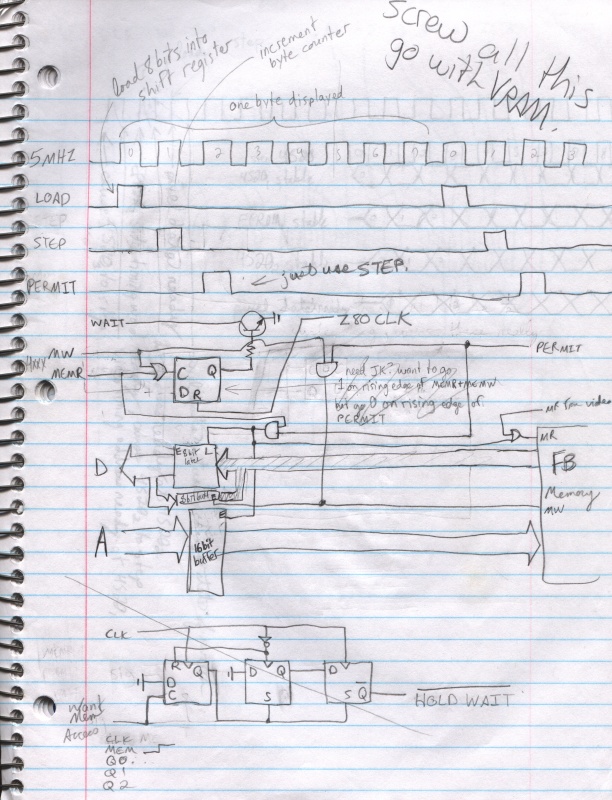 Screw all this
go with VRAM.
load 8 bits into
shift register
increment
byte counter
one byte displayed
5MHz 0 2 3 4 5 6 7 0 1 2 3
LOAD
STEP
PERMIT
just use STEP.
WAIT
Z80 CLK
MW
MEMR
C Q
D R
PERMIT
need JK? want to go
1 on rising edge of MEMR+MEMW
but go 0 on rising edge of
PERMIT
MR from video
MR
D
E 8bit L
latch
FB
Memory
MW
A
E
16bit
buffer
CLK
R Q
D
C
D Q
S
D
S Q
HOLD WAIT
Want
Mem
Access
CLK
MEM
Q0
Q1
Q2